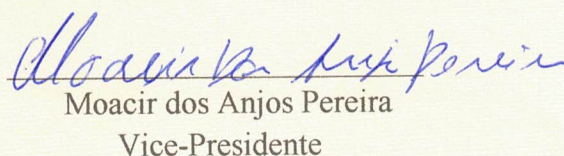 Moacir dos Anjos Pereira
Moacir dos Anjos Pereira
Vice-Presidente